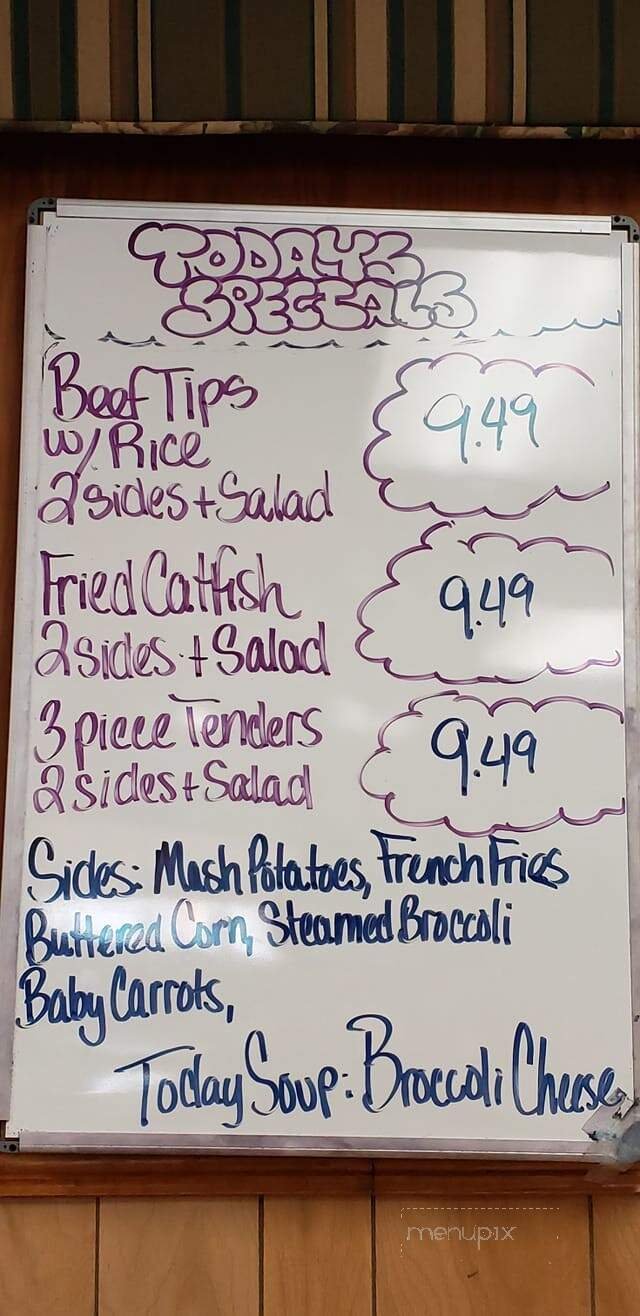 TODAYS
SPECIALS
Beef Tips
w/ Rice
2 sides + Salad
9.49
Fried Catfish
2 sides + Salad
9.49
3 piece Tenders
2 sides + Salad
9.49
Sides: Mash Potatoes, French Fries
Buttered Corn, Steamed Broccoli
Baby Carrots,
Today Soup: Broccoli Cheese
menupix